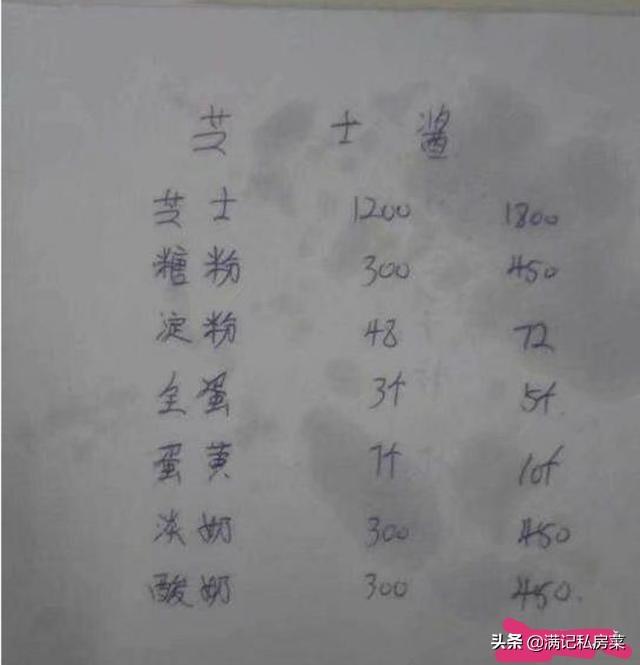 芝 士 酱
芝士 1200 1800
糖粉 300 450
淀粉 48 72
全蛋 3个 5个
蛋黄 7个 10个
淡奶 300 450
酸奶 300 450
头条 @满记私房菜